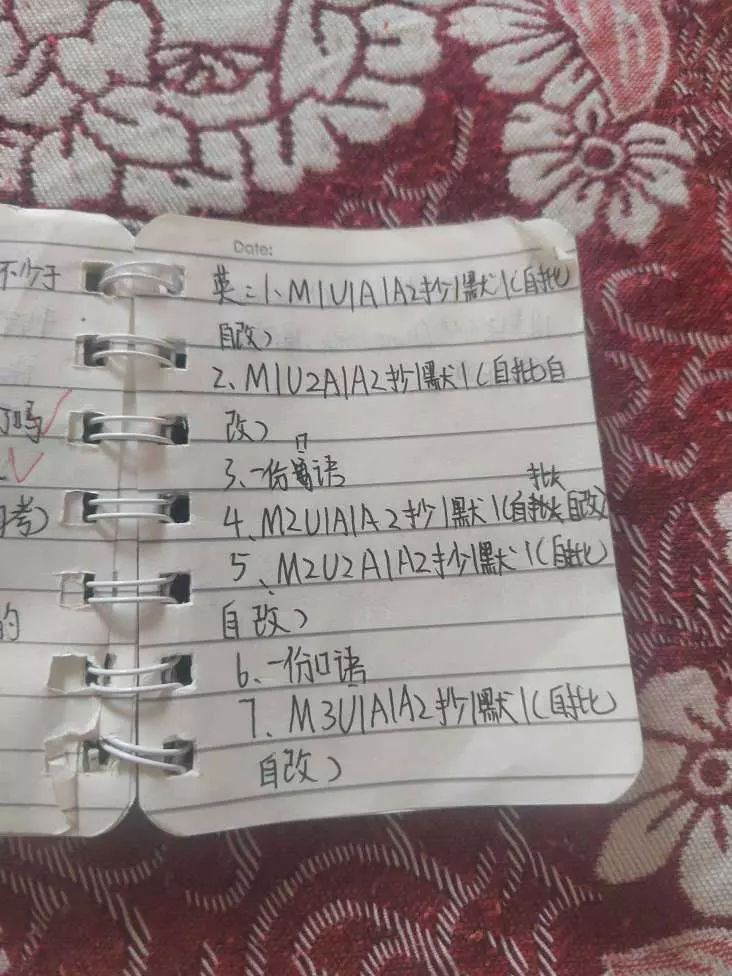 不少于
吗
考)
的
Date:
英:1、M1U1A1A2抄1默1(自批
自改)
2、M1U2A1A2抄1默1(自批自
改)
3、一份口语
4、M2U1A1A2抄1默1(自批自改)
5、M2U2A1A2抄1默1(自批
自改)
6、一份口语
7、M3U1A1A2抄1默1(自批
自改)